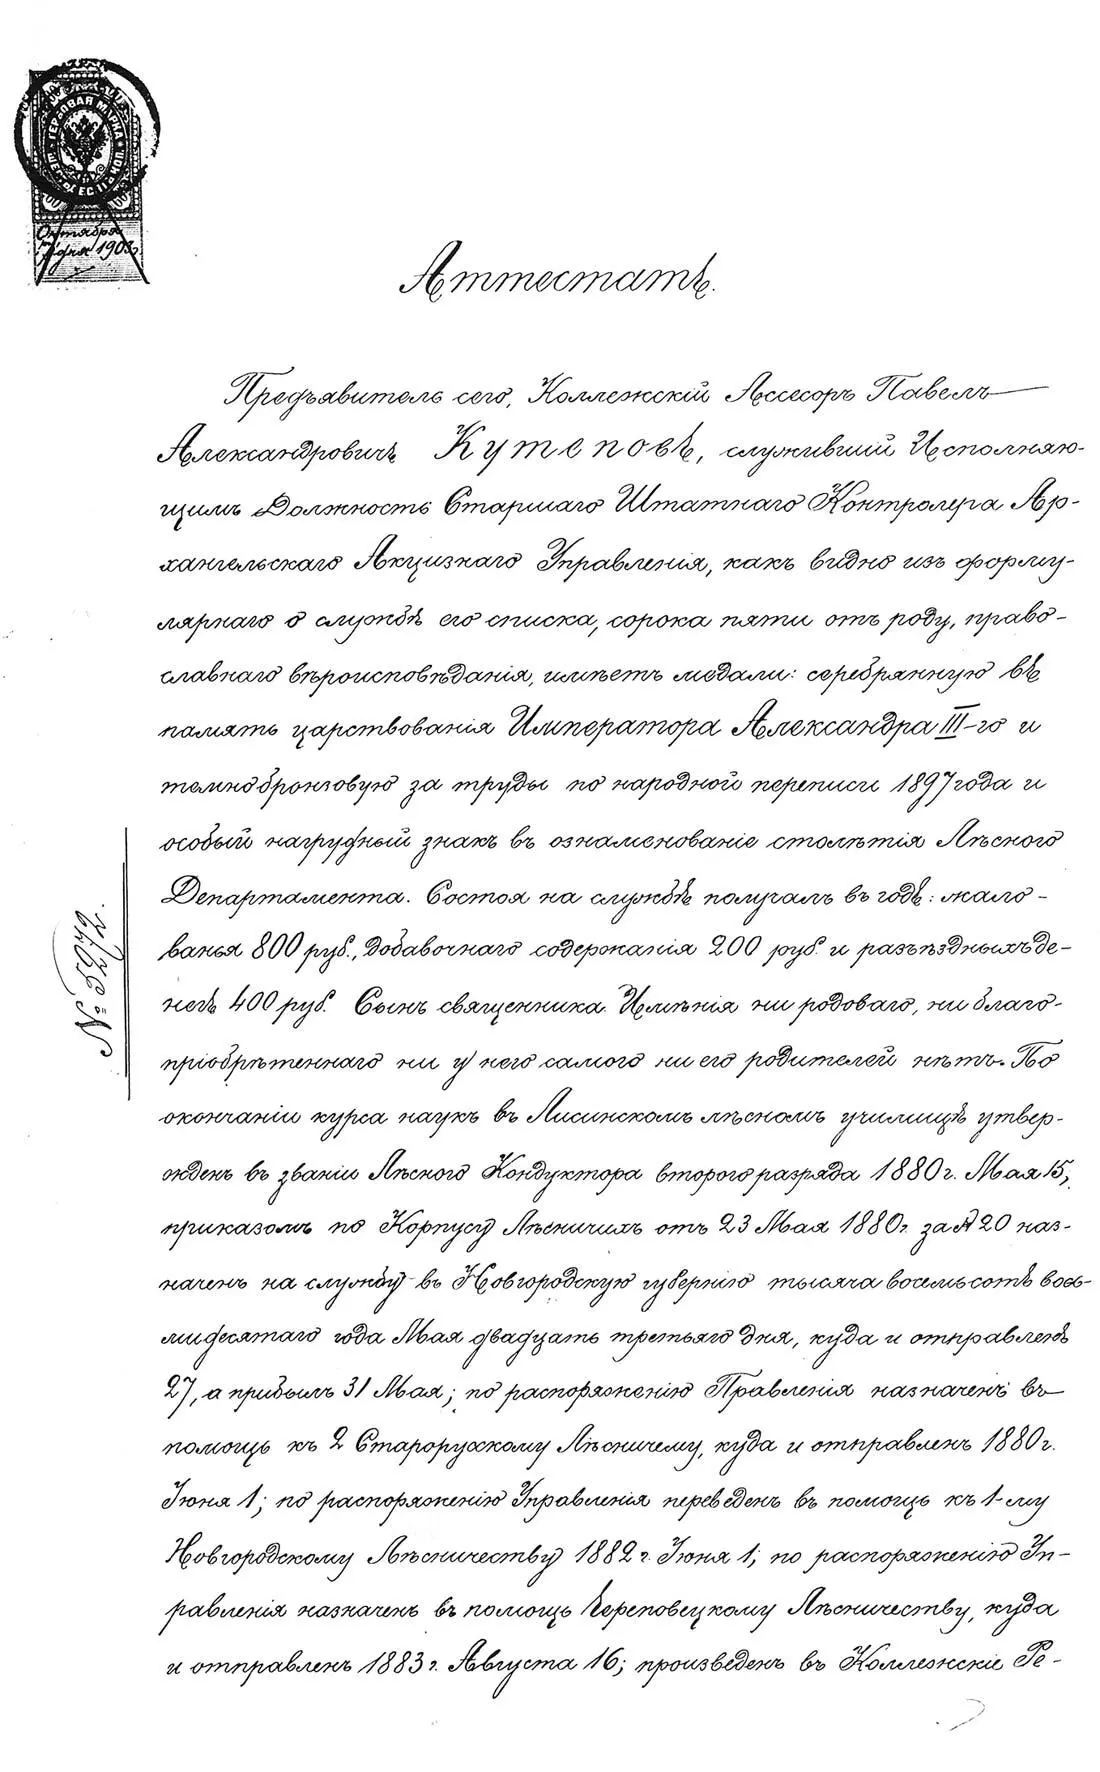 ГЕРБОВАЯ МАРКА
Октября
7 дня 1903
Аттестатъ.
Предъявитель сего, Коллежскій Ассесоръ Павелъ
Александровичъ Кутеповъ, служившій Исполняю-
щимъ Должность Старшаго Штатнаго Контролера Ар-
хангельскаго Акцизнаго Управленія, какъ видно изъ форму-
лярнаго о службѣ его списка, сорока пяти отъ роду, право-
славнаго вѣроисповѣданія, имѣетъ медали: серебрянную въ
память царствованія Императора Александра III-го и
темнобронзовую за труды по народной переписи 1897 года и
особый нагрудный знакъ въ ознаменованіе столѣтія Лѣсного
Департамента. Состоя на службѣ получалъ въ годъ: жало-
ванья 800 руб., добавочнаго содержанія 200 руб. и разъѣздныхъ де-
негъ 400 руб. Сынъ священника. Имѣнія ни родоваго, ни благо-
пріобрѣтеннаго ни у него самого ни его родителей нѣтъ. По
окончаніи курса наукъ въ Лисинскомъ лѣсномъ училищѣ утвер-
жденъ въ званіи Лѣсного Кондуктора второго разряда 1880 г. Мая 15;
приказомъ по Корпусу Лѣсничихъ отъ 23 Мая 1880 г. за № 20 наз-
наченъ на службу въ Новгородскую губернію тысяча восемьсотъ вось-
мидесятаго года Мая двадцать третьяго дня, куда и отправленъ
27, а прибылъ 31 Мая; по распоряженію Правленія назначенъ въ
помощь къ 2 Старорусскому Лѣсничему, куда и отправленъ 1880 г.
Іюня 1; по распоряженію Управленія переведенъ въ помощь къ 1-му
Новгородскому Лѣсничеству 1882 г. Іюня 1; по распоряженію Уп-
равленія назначенъ въ помощь Череповецкому Лѣсничеству, куда
и отправленъ 1883 г. Августа 16; произведенъ въ Коллежскіе Ре-
№ 5272.